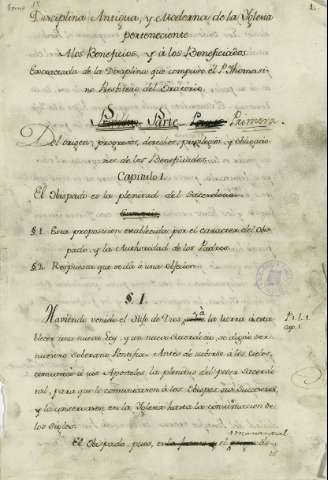 Disciplina Antigua, y Moderna de la Yglesia
perteneciente
A los Beneficios, y à los Beneficiados
Extractada de la Disciplina que compuso el P. Thomasi-
no Presbitero del Oratorio.
Parte Primera.
Del origen, progresos, derechos, privilegios, y obligacio-
nes de los Beneficiados.
Capitulo 1.
El Obispado es la plenitud del Sacerdocio
§ 1. Esta proposicion establecida por el caracter del Obis-
pado, y la Authoridad de los Padres.
§ 2. Respuesta que se dà à una objecion.
§ 1
Haviendo venido el Hijo de Dios, à la tierra à esta-
blecer una nueva Ley, y un nuevo Sacerdocio, se dignò ser
nuestro Soberano Pontifice. Antes de subirse à los Cielos,
comunicò à sus Apostoles la plenitud del poder Sacerdo-
tal, para que le comunicaran à los Obispos sus Successores,
y la conservasen en la Yglesia hasta la consumacion de
los Siglos.
P. 1. l. 1.
cap. 1.
El Obispado, pues, es el